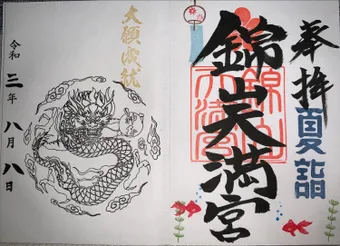 奉拝
夏詣
錦山天満宮
大願成就
令和三年八月八日